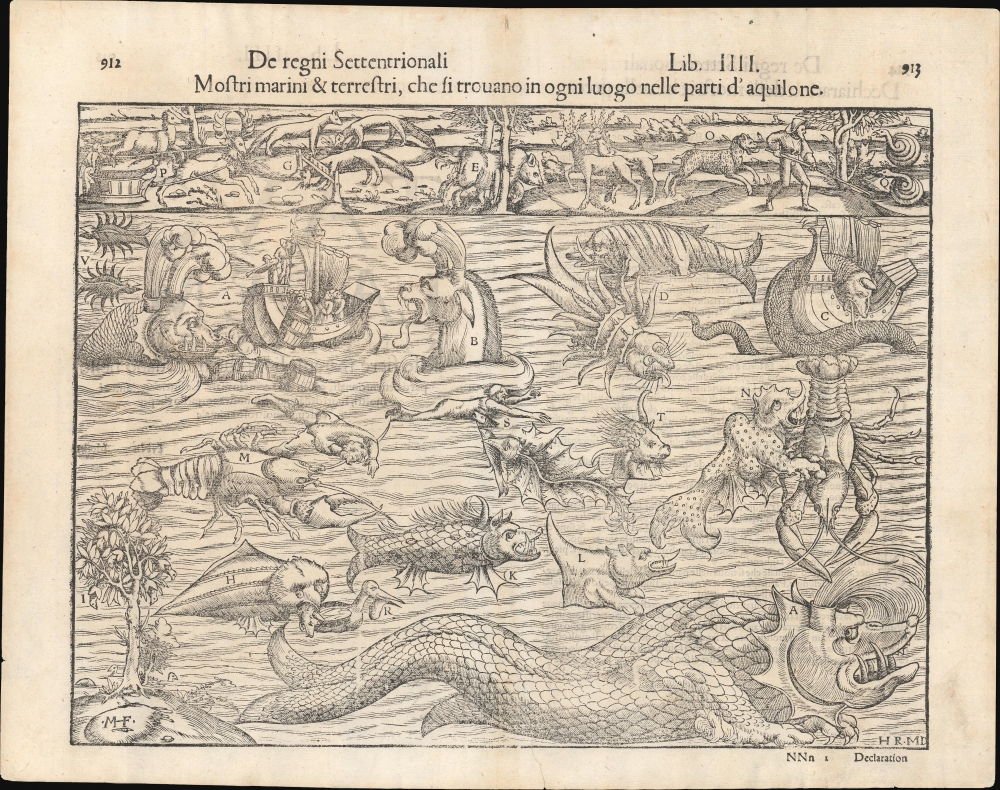 912 De regni Settentrionali Lib. IIII. 913
Mostri marini & terrestri, che si trouano in ogni luogo nelle parti d' aquilone.
P G E O
V A B D C
S T N
M
H K L
I R A
·MHF·
HR·MD
NNn 1 Declaration